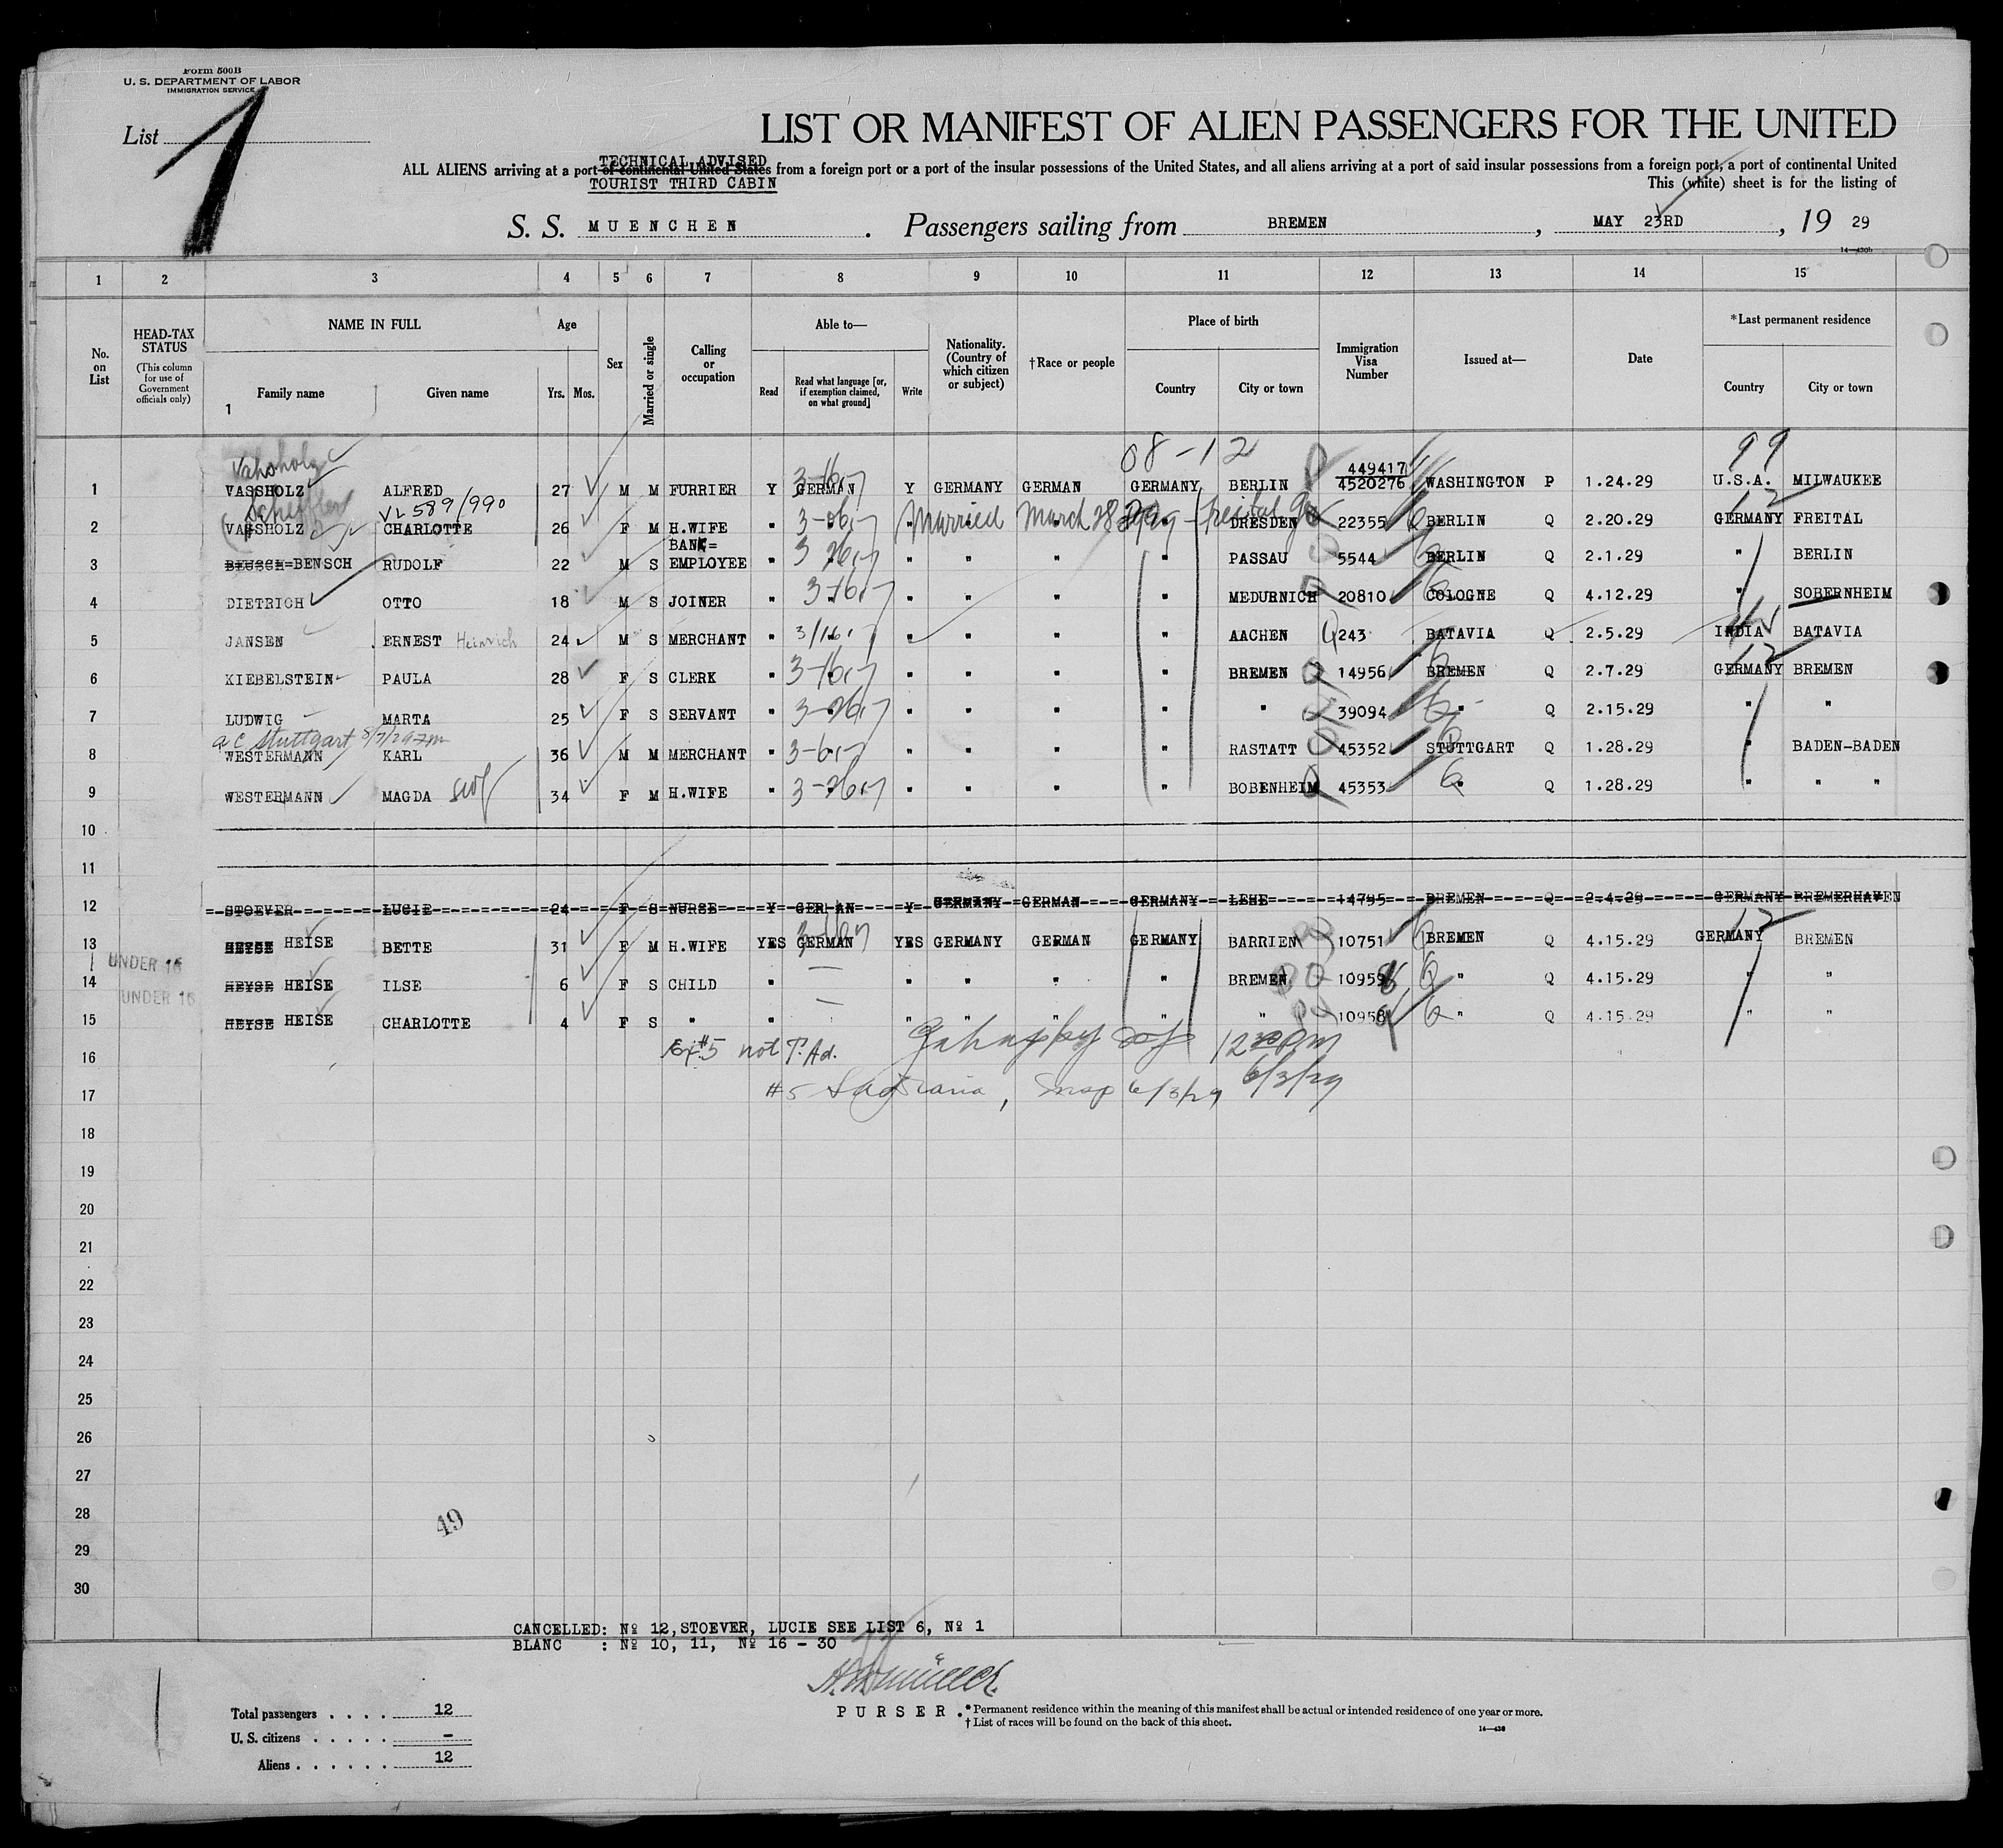 Form 500B
U. S. DEPARTMENT OF LABOR
IMMIGRATION SERVICE
List 1
LIST OR MANIFEST OF ALIEN PASSENGERS FOR THE UNITED
TECHNICAL ADVISED
ALL ALIENS arriving at a port of continental United States from a foreign port or a port of the insular possessions of the United States, and all aliens arriving at a port of said insular possessions from a foreign port, a port of continental United
TOURIST THIRD CABIN
This (white) sheet is for the listing of
S. S. MUENCHEN. Passengers sailing from BREMEN, MAY 23RD, 19 29
14—430b
1 2 3 4 5 6 7 8 9 10 11 12 13 14 15
No. on List
HEAD-TAX STATUS
(This column for use of Government officials only)
NAME IN FULL
Family name
Given name
1
Age
Yrs. Mos.
Sex
Married or single
Calling or occupation
Able to—
Read
Read what language [or, if exemption claimed, on what ground]
Write
Nationality. (Country of which citizen or subject)
†Race or people
Place of birth
Country
City or town
Immigration Visa Number
Issued at—
Date
*Last permanent residence
Country
City or town
08-12
99
Vahsholz
449417
1 VASSHOLZ ALFRED 27 M M FURRIER Y GERMAN Y GERMANY GERMAN GERMANY BERLIN 4520276 WASHINGTON P 1.24.29 U.S.A. MILWAUKEE
Scheffler VL 589/990 12
Married March 28 1929 - Freital
2 VASSHOLZ CHARLOTTE 26 F M H.WIFE " " " " " " DRESDEN 22355 BERLIN Q 2.20.29 GERMANY FREITAL
BANK=
3 BEUSCH=BENSCH RUDOLF 22 M S EMPLOYEE " " " " " " PASSAU 5544 BERLIN Q 2.1.29 " BERLIN
4 DIETRICH OTTO 18 M S JOINER " " " " " " MEDURNICH 20810 COLOGNE Q 4.12.29 " SOBERNHEIM
5 JANSEN ERNEST Heinrich 24 M S MERCHANT " " " " " AACHEN 243 BATAVIA Q 2.5.29 INDIA BATAVIA
12
6 KIEBELSTEIN PAULA 28 F S CLERK " " " " " " BREMEN 14956 BREMEN Q 2.7.29 GERMANY BREMEN
7 LUDWIG MARTA 25 F S SERVANT " " " " " " " 39094 " Q 2.15.29 " "
Stuttgart
8 WESTERMANN KARL 36 M M MERCHANT " " " " " " RASTATT 45352 STUTTGART Q 1.28.29 " BADEN-BADEN
9 WESTERMANN MAGDA 34 F M H.WIFE " " " " " " BOBENHEIM 45353 " Q 1.28.29 " " "
10
11
12 STOEVER LUCIE 24 F S NURSE Y GERMAN Y GERMANY GERMAN GERMANY LEHE 14795 BREMEN Q 2.4.29 GERMANY BREMERHAVEN
12
13 HEYSE HEISE BETTE 31 F M H.WIFE YES GERMAN YES GERMANY GERMAN GERMANY BARRIEN 10751 BREMEN Q 4.15.29 GERMANY BREMEN
UNDER 16
14 HEYSE HEISE ILSE 6 F S CHILD " — " " " " BREMEN 10959 " Q 4.15.29 " "
UNDER 16
15 HEYSE HEISE CHARLOTTE 4 F S " " — " " " " " 10958 " Q 4.15.29 " "
16 #5 not T. Ad. 12 30 PM
17 #5 6/3/29 6/3/29
18
19
20
21
22
23
24
25
26
27
28
49
29
30
CANCELLED: Nº 12, STOEVER, LUCIE SEE LIST 6, Nº 1
BLANC : Nº 10, 11, Nº 16 - 30
PURSER.
* Permanent residence within the meaning of this manifest shall be actual or intended residence of one year or more.
† List of races will be found on the back of this sheet.
14—430
Total passengers . . . . 12
U. S. citizens . . . . . –
Aliens . . . . . . 12